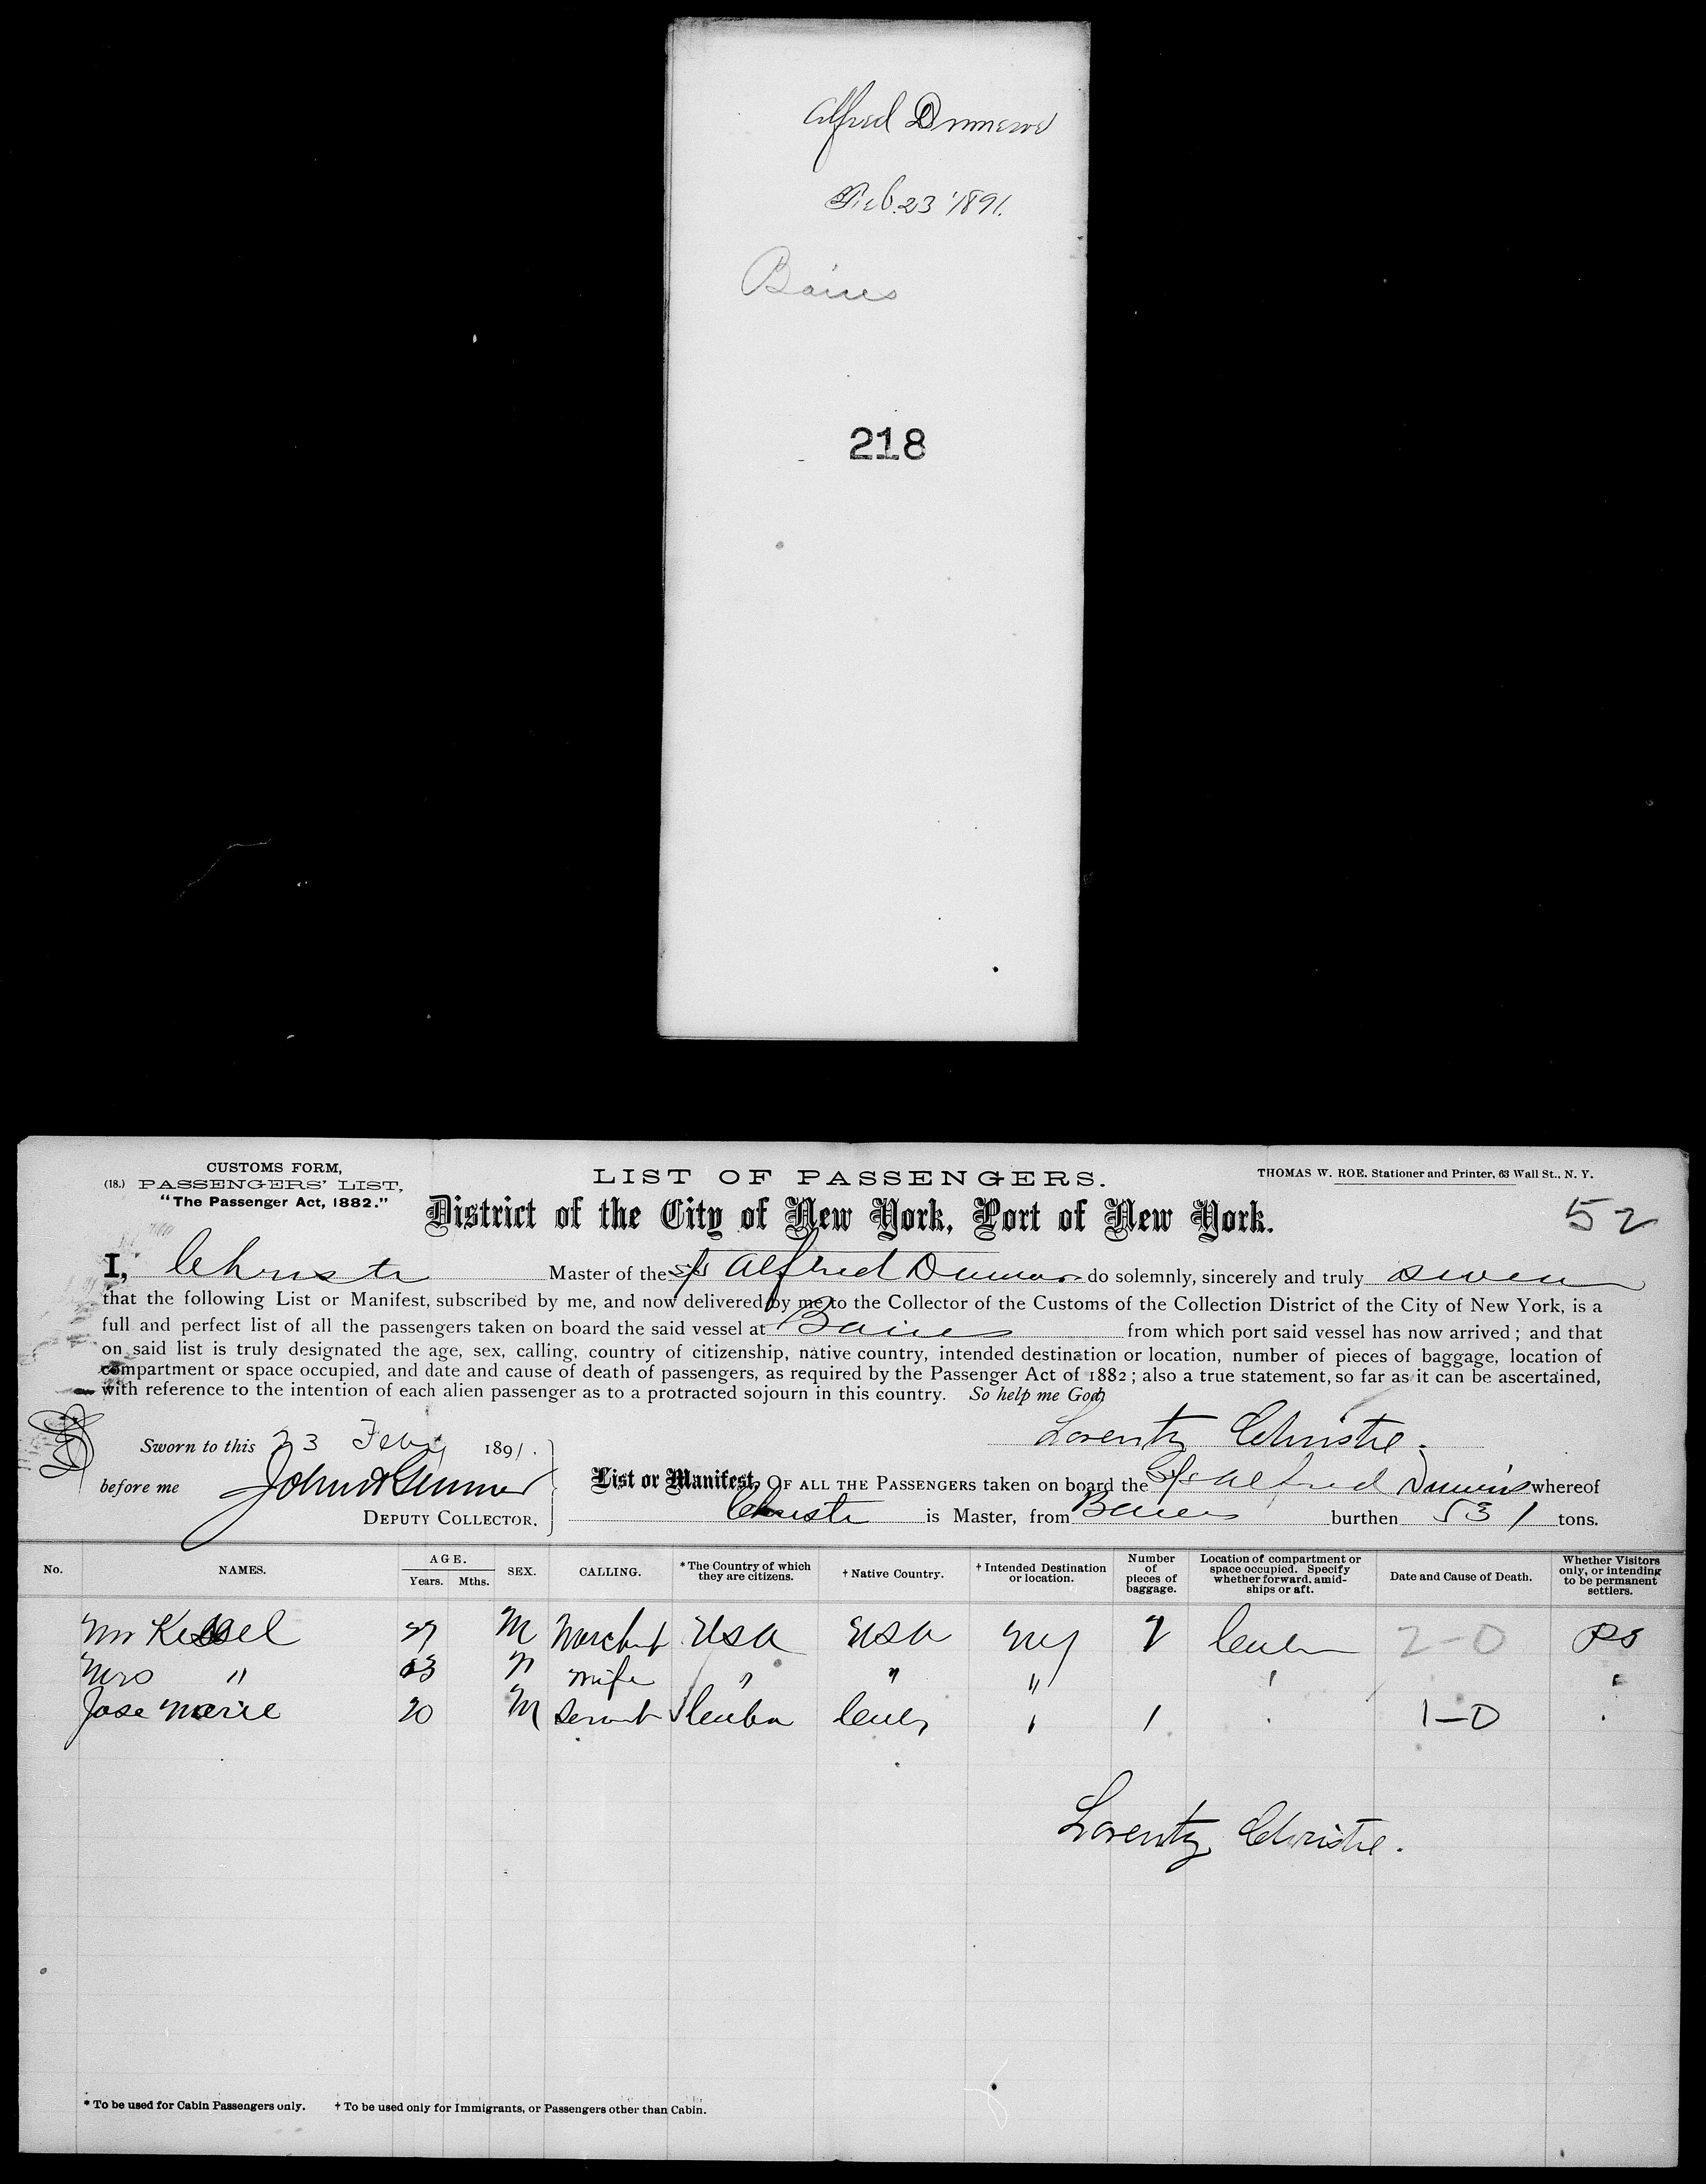 Alfred Dumois
Feb. 23 1891.
Banes
218
CUSTOMS FORM,
(18.) PASSENGERS' LIST,
"The Passenger Act, 1882."
LIST OF PASSENGERS.
THOMAS W. ROE, Stationer and Printer, 63 Wall St., N. Y.
District of the City of New York, Port of New York.
52
I, Christi Master of the S/S Alfred Dumois do solemnly, sincerely and truly swear
that the following List or Manifest, subscribed by me, and now delivered by me to the Collector of the Customs of the Collection District of the City of New York, is a
full and perfect list of all the passengers taken on board the said vessel at Banes from which port said vessel has now arrived; and that
on said list is truly designated the age, sex, calling, country of citizenship, native country, intended destination or location, number of pieces of baggage, location of
compartment or space occupied, and date and cause of death of passengers, as required by the Passenger Act of 1882; also a true statement, so far as it can be ascertained,
with reference to the intention of each alien passenger as to a protracted sojourn in this country. So help me God,
Lorentz Christie.
Sworn to this 23 Feby 1891.
before me John
DEPUTY COLLECTOR.
List or Manifest, OF ALL THE PASSENGERS taken on board the S/S Alfred Dumois whereof
Christi is Master, from Banes burthen 531 tons.
No. NAMES. AGE. Years. Mths. SEX. CALLING. * The Country of which they are citizens. † Native Country. † Intended Destination or location. Number of pieces of baggage. Location of compartment or space occupied. Specify whether forward, amidships or aft. Date and Cause of Death. Whether Visitors only, or intending to be permanent settlers.
Mr Kessel 29 M Merchant USA USA NY 2 2-0 PS
Mrs " 23 wife " " "
Jose Marie 20 M Servant Cuba Cuba 1 1-0
Lorentz Christie.
* To be used for Cabin Passengers only. † To be used only for Immigrants, or Passengers other than Cabin.